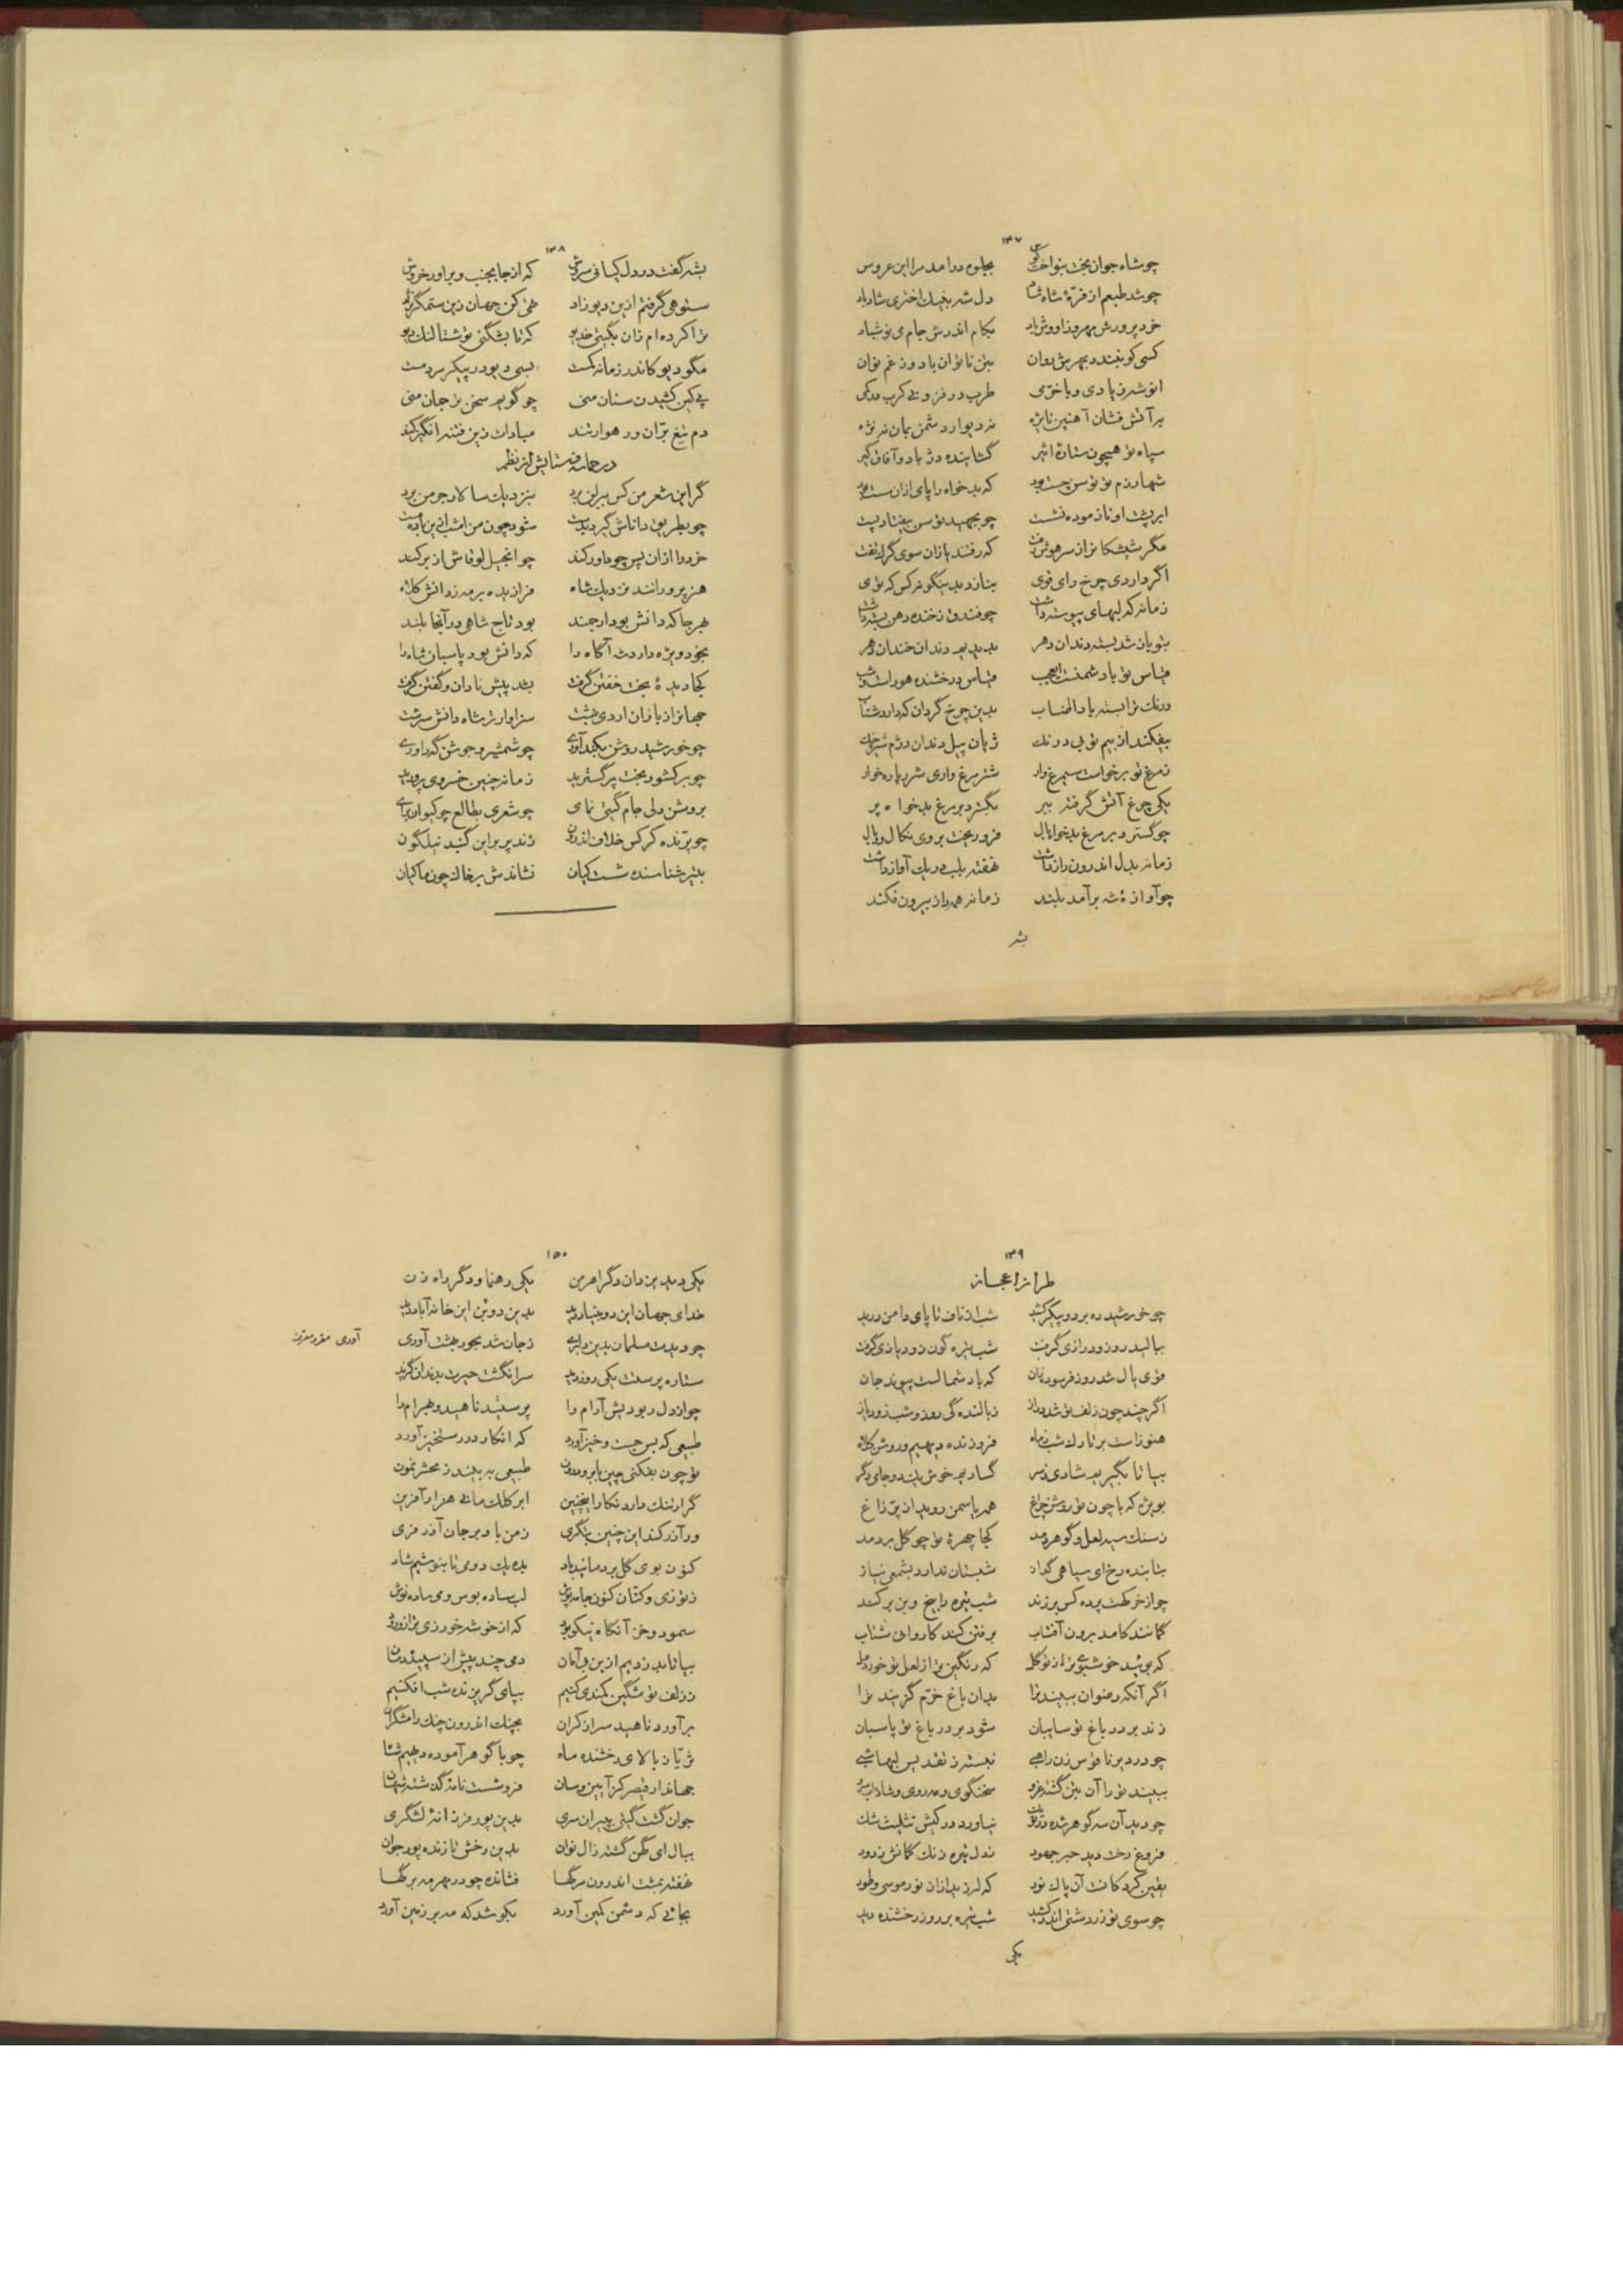 ۱۴۷
چو شاه جوان بخت بنواخت کوس بجلوه درامد مرا این عروس
چو شد طبعم از فرّهٔ شاه شاد دل شه بنیک اختری شاد باد
خود پرورش مهر روز او وش باد بکام اندرش جام می نوش باد
کسی کو نبندد بمهرش روان بتن ناتوان باد و ز غم نوان
انوشه زیادی و با خرّمی طرب در فزونی کرب در کمی
بر آتش فشان آهنین نایژه نه دیوارد دشمن بمان نه نژه
سپاه تو همچون ستارهٔ اثیر گشاینده دژ باد و آفاق گیر
شها رزم تو توسن جست بود که بدخواه را پای ازان سست بود
ابر پشت او نازموده نشست چو بجهید توسن بیفتاد پست
مگر شپشکانرا ز سر هوش رفت که رفتند یازان سوی گرگ تفت
اگر داردی چرخ رای قوی بنازد بدینگونه کس که توی
زمانه که لبهای پیوسته داشت چو فندق ز خنده دهن بسته داشت
بتو باز شد بسته دندان دهر بدیدیم دندان خندان دهر
قیاس تو با دشمنت ای عجب قیاس درخشنده هور است و شب
درنگ ترا بسته باد انتساب بدین چرخ گردان که دارد شتاب
بیفکند از بیم تو بی درنگ ژیان پیل دندان دژم شیر چنگ
ز مرغ تو برخواست سیمرغ وار شتر مرغ واری شرر پاره خوار
یکی چرغ آتش گرفته ببر بگسترد بر مرغ بدخواه پر
چو گسترد بر مرغ بدخواه بال فرو ریخت بروی نکال و وبال
زمانه بدل اندرون راز داشت نهفته بلب در یک آواز داشت
چو آوازهٔ شه برآمد بلند زمانه همه راز بیرون فکند
بشه
۱۴۸
بشه گفت در دل کیانی سروش که از جا بجنب و براور خروش
ستوهی گرفتم ازین دیوزاد تهی کن جهان زین ستمگر نژاد
ترا کرده ام زان بگیتی خدیو که تا بشگنی تو شتالنگ دیو
مگو دیو کاندر زمانه کمست بسی دیو در پیکر مردمست
پی کین کشیدن سنان منی چو گویم سخن ترجمان منی
دم تیغ برّان ور هوارتند مبادات زین فتنه انگیز کند
در حماسه و ستایش از نظم
گر این شعر من کس بیزدان برد بنزدیک سالار جرمن برد
چو بطریق داناش گیرد بدست شود چون من امشب ازین باده مست
خرد را ازان پس چو داور کند چو انجیل لوقاش از بر کند
هنرپرور انند نزدیک شاه فرازیده بر مه ز دانش کلاه
بهرجا که دانش بود ارجمند بود تاج شاهی در آنجا بلند
بخود ویژه دارد شه آگاه را که دانش بود پاسبان شاه را
کجا دیدهٔ بخت خفتن گرفت بشد پیش نادان و گفتن گرفت
جهانرا ز یازان اردی بهشت سزاوارتر شاه دانش سرشت
چو خورشید روشن بکندآوری چو شمشیر و جوشن گه داوری
چو بر کشور بخت پر گسترید زمانه چنین خسروی پرورید
بروشن دلی جام گیتی نمای چو شعری بطالع چو کیوان برای
چو پرّنده کرکس خلاف اندرون زند پر برین گنبد نیلگون
بتیر شناسنده شست کیان نشاندش بر خاک چون ماکیان
۱۴۹
طراز اعجاز
چو خورشید ره بر دو پیکر کشید شب از ناف تا پای دامن درید
ببالید روز و درازی گرفت شب تیره گون زود یازی گرفت
قوی یال شد روز فرسود زان که باد شمالست پیوند جان
اگر چند چون زلف تو شد دراز ز بالندگی روز و شب زود یاز
هنوز است بر تارک شب ز ماه فروزنده دیهیم و روشن کلاه
بیا تا بگیریم شادی ز سر گساریم خوش باشد و جای دگر
بویژه که با چون تو روشن چراغ همه یاسمن روید از پرّ زاغ
ز سنگ سیه لعل و گوهر دمد کجا چهرهٔ تو چو گل بر دمد
بتابنده رخ ای سیاهی گداز شبستان ندارد بشمعی نیاز
چو از خرگهت پرده کس بر زند شب تیره را بیخ و بن بر کند
گمانند کامد برون آفتاب برفتن کند کاروانی شتاب
که بوئید خوشبوی تر از تو گل که رنگین تر از لعل تو خورد مل
اگر آنکه رضوان ببیند ترا بدان باغ خرّم گزیند ترا
زند بر در باغ تو سایبان شود بر در باغ تو پاسبان
چو درد بر ناقوس زن راهبی نبسته ز تقدیس لبها شبی
ببیند تو را آن بتن گشته فرد سخنگوی و مه روی و شاداب سرد
چو دید آن سه گوهر شده زر ناب نیاورد در کیش تثلیث شک
فروغ رخت دید حبر جهود ز دل تیره زنگ گمانش زدود
یقین کرد کانست آن پاک نور که لرزید ازان نور موسی و طور
چو سوی تو زردشتی اندر کشید شب تیره بر روز رخشنده دید
یکی
۱۵۰
یکی دید یزدان دگر اهرمن یکی رهنما و دگر راه زن
خدای جهان این دو بنیاد دید بدین دو بُن این خانه آباد دید
چو دیدت مسلمان بدین دلبری ز جان شد بحور بهشت آوری
آوری مقر و معترف
ستاره پرستت یکی روز دید سر انگشت حیرت بدندان گزید
چو از دل ربودیش آرام را پرستید ناهید و بهرام را
طبیعی که بس جست و خیز آورد که انکار در رستخیز آورد
تو چون بفکنی چین بابرو درون طبیعی ببیند ز محشر نمون
گر ارتنگ دارد نگار اینچنین ابر کلک مانی هزار آفرین
ور آزر کند این چنین بتگری ز من باد بر جان آذر فری
کنون بوی گل بر دمانید باد بده یک دو می تا بنوشیم شاد
ز توزی و کتّان کنون جامه پوش لب ساده بوس و می ساده نوش
سمور و خز آنگاه نیکو بود که از خوشه خور زی ترازو رود
بیا تا بدزدیم ازین بی امان دمی چند پیش از سپیده دمان
ز زلف تو مشگین کمندی کنیم بپای گریزنده شب افکنیم
برآورد ناهید سر از کران بچنگ اندرون چنگ رامشگران
ثریّا ز بالای رخشنده ماه چو با گوهر آموده دیهیم شاه
جهاندار قیصر کز آیین و سان فرو شست نامهٔ گذشته شهان
جوان گشت گیتی پیران سری بدین پور فرزانهٔ لشگری
ببال ای کهن گشته زال نوان بدین رخش تازنده پور جوان
نهفته بمشت اندرون مرگها فشانده چو در مهر مه برگها
بجائی که دشمن کمین آورد بکوشد که مه بر زمین آورد